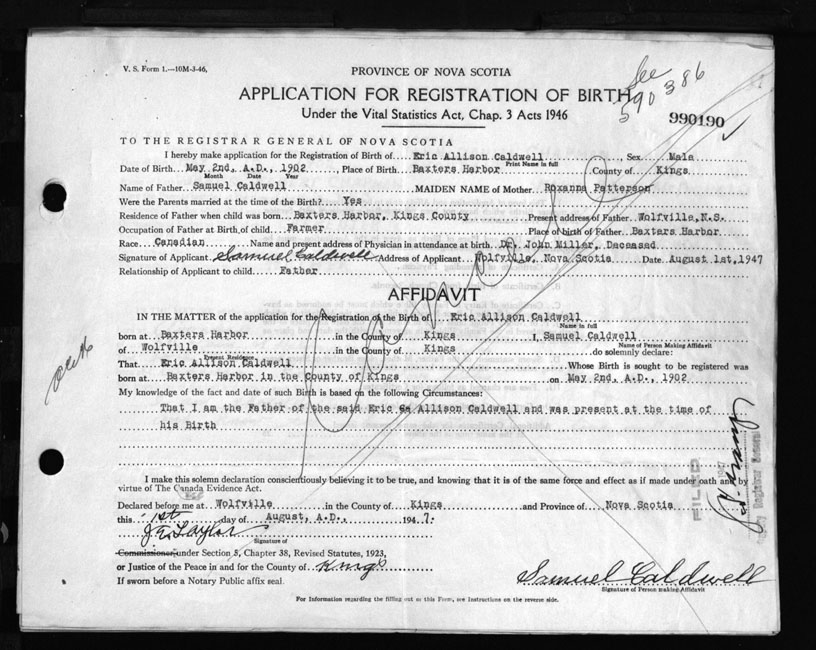 V. S. Form 1.—10M-3-46,
PROVINCE OF NOVA SCOTIA
See
590386
APPLICATION FOR REGISTRATION OF BIRTH
Under the Vital Statistics Act, Chap. 3 Acts 1946
990190
TO THE REGISTRAR GENERAL OF NOVA SCOTIA
I hereby make application for the Registration of Birth of Eric Allison Caldwell Sex Male
Print Name in full
Date of Birth May 2nd, A.D., 1902 Place of Birth Baxters Harbor County of Kings
Month Date Year
Name of Father Samuel Caldwell MAIDEN NAME of Mother Roxanna Patterson
Were the Parents married at the time of the Birth? Yes
Residence of Father when child was born Baxters Harbor, Kings County Present address of Father Wolfville, N.S.
Occupation of Father at Birth of child Farmer Place of birth of Father Baxters Harbor
Race Canadian Name and present address of Physician in attendance at birth Dr. John Miller, Deceased
Signature of Applicant Samuel Caldwell Address of Applicant Wolfville, Nova Scotia Date August 1st, 1947
Relationship of Applicant to child Father
AFFIDAVIT
IN THE MATTER of the application for the Registration of the Birth of Eric Allison Caldwell
Name in full
born at Baxters Harbor in the County of Kings I, Samuel Caldwell
Name of Person Making Affidavit
of Wolfville in the County of Kings do solemnly declare:
Present Residence
That Eric Allison Caldwell Whose Birth is sought to be registered was
born at Baxters Harbor in the County of Kings on May 2nd, A.D., 1902
My knowledge of the fact and date of such Birth is based on the following Circumstances:
That I am the Father of the said Eric Allison Caldwell and was present at the time of
his Birth
I make this solemn declaration conscientiously believing it to be true, and knowing that it is of the same force and effect as if made under oath and by
virtue of The Canada Evidence Act.
Declared before me at Wolfville in the County of Kings and Province of Nova Scotia
this 1st day of August, A.D., 1947.
J E Taylor
Signature of
Commissioner, under Section 8, Chapter 38, Revised Statutes, 1923,
or Justice of the Peace in and for the County of Kings
If sworn before a Notary Public affix seal.
Samuel Caldwell
Signature of Person making Affidavit
For Information regarding the filling out of this Form, see Instructions on the reverse side.
FILED